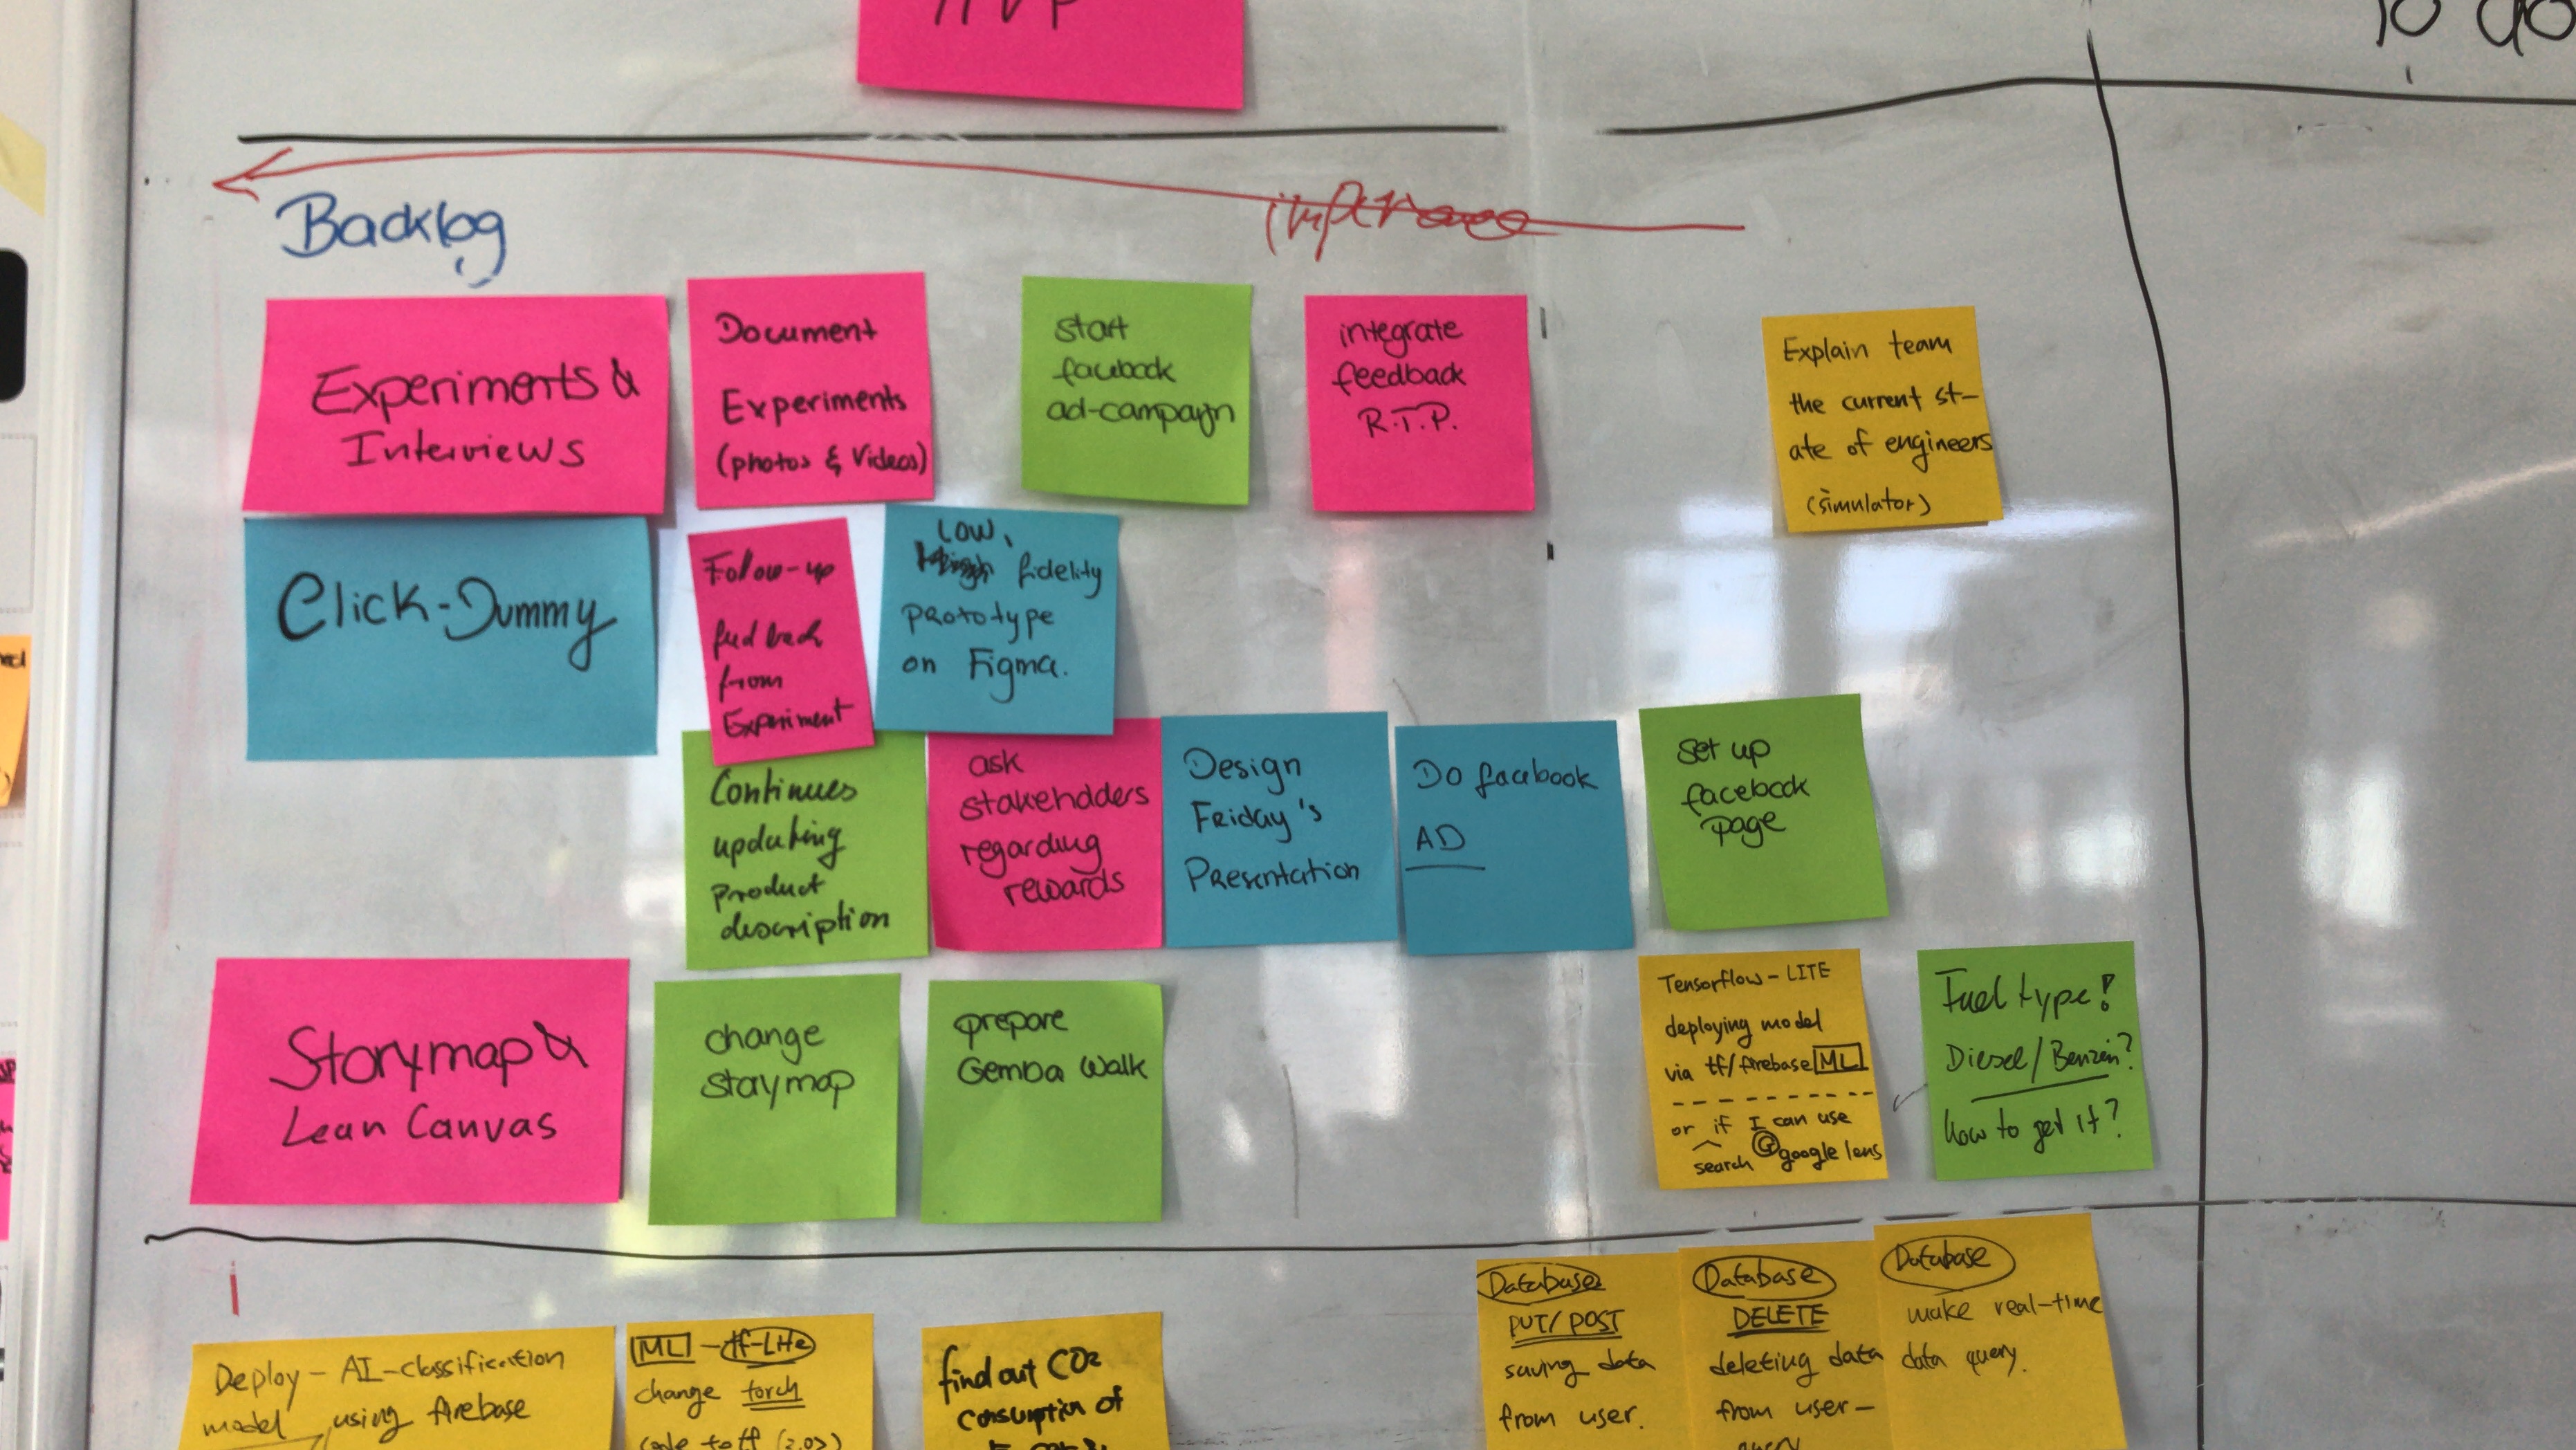 To do
Backlog
Experiments &
Interviews
Document
Experiments
(photos & Videos)
start
facebook
ad-campaign
integrate
feedback
R.T.P.
Explain team
the current st-
ate of engineers
(simulator)
Click-Dummy
Follow-up
feedback
from
Experiment
Low,
fidelity
prototype
on Figma.
Continues
updating
product
description
ask
stakeholders
regarding
rewards
Design
Friday's
Presentation
Do facebook
AD
set up
facebook
page
Storymap &
Lean Canvas
change
storymap
prepare
Gemba Walk
Tensorflow-LITE
deploying model
via tf/firebase ML
or if I can use
search @google lens
Fuel type!
Diesel/Benzin?
How to get it?
Deploy-AI-classification
model using firebase
ML - tf-Lite
change torch
code to tf (2.0>)
find out CO2
consumption of
Database
PUT/POST
saving data
from user.
Database
DELETE
deleting data
from user-
query
Database
make real-time
data query.